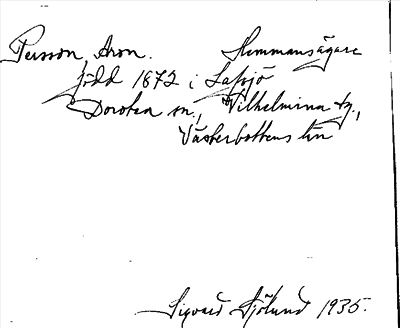 Persson, Aron. Hemmansägare
född 1872 i Lafsjö
Dorotea sn., Vilhelmina tg.,
Västerbottens län
Sigvard Sjölund 1935.